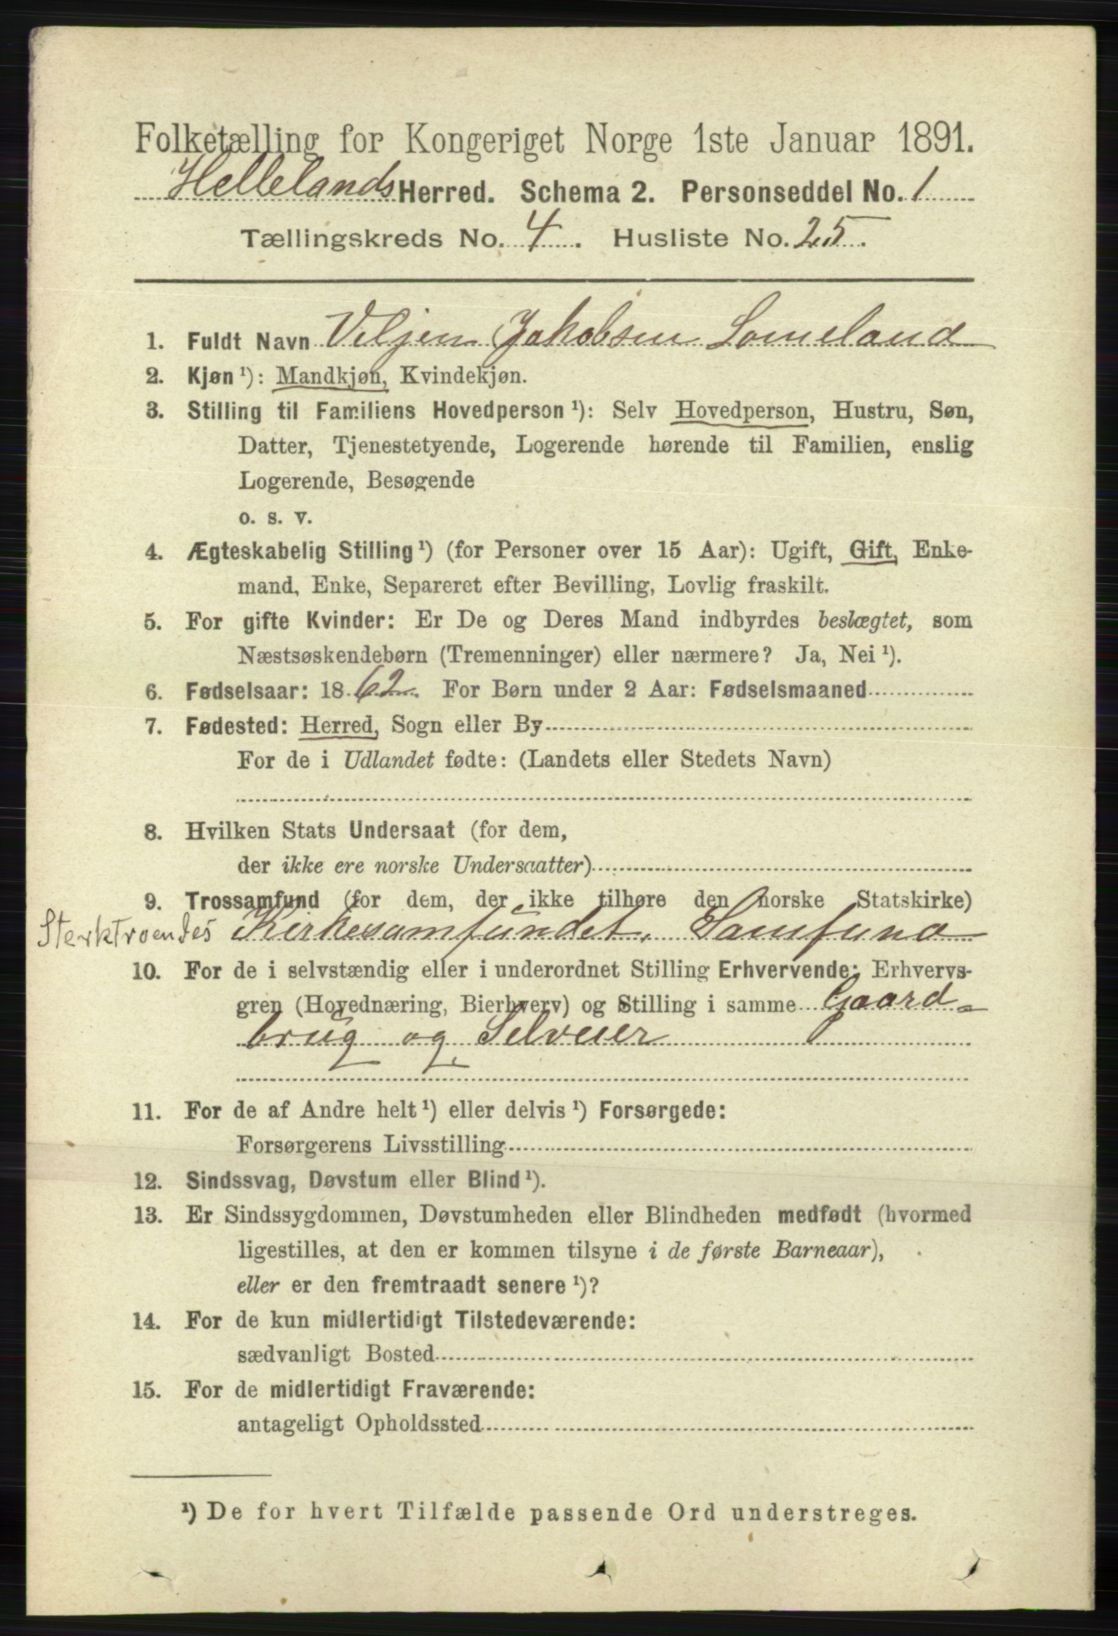 Folketælling for Kongeriget Norge 1ste Januar 1891.
Hellelands Herred. Schema 2. Personseddel No. 1
Tællingskreds No. 4. Husliste No. 25.
1. Fuldt Navn Veljem Jakobsen Lomeland
2. Kjøn ¹): Mandkjøn, Kvindekjøn.
3. Stilling til Familiens Hovedperson ¹): Selv Hovedperson, Hustru, Søn,
Datter, Tjenestetyende, Logerende hørende til Familien, enslig
Logerende, Besøgende
o. s. v.
4. Ægteskabelig Stilling ¹) (for Personer over 15 Aar): Ugift, Gift, Enke-
mand, Enke, Separeret efter Bevilling, Lovlig fraskilt.
5. For gifte Kvinder: Er De og Deres Mand indbyrdes beslægtet, som
Næstsøskendebørn (Tremenninger) eller nærmere? Ja, Nei ¹).
6. Fødselsaar: 1862. For Børn under 2 Aar: Fødselsmaaned
7. Fødested: Herred, Sogn eller By
For de i Udlandet fødte: (Landets eller Stedets Navn)
8. Hvilken Stats Undersaat (for dem,
der ikke ere norske Undersaatter)
9. Trossamfund (for dem, der ikke tilhøre den norske Statskirke)
Sterktroendes Kirkesamfundet. Samfund
10. For de i selvstændig eller i underordnet Stilling Erhvervende: Erhvervs-
gren (Hovednæring, Bierhverv) og Stilling i samme Gaard-
brug og Selveier
11. For de af Andre helt ¹) eller delvis ¹) Forsørgede:
Forsørgerens Livsstilling
12. Sindssvag, Døvstum eller Blind ¹).
13. Er Sindssygdommen, Døvstumheden eller Blindheden medfødt (hvormed
ligestilles, at den er kommen tilsyne i de første Barneaar),
eller er den fremtraadt senere ¹)?
14. For de kun midlertidigt Tilstedeværende:
sædvanligt Bosted
15. For de midlertidigt Fraværende:
antageligt Opholdssted
¹) De for hvert Tilfælde passende Ord understreges.